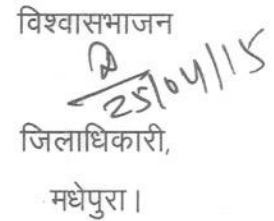 विश्वासभाजन
25/04/15
जिलाधिकारी,
मधेपुरा।